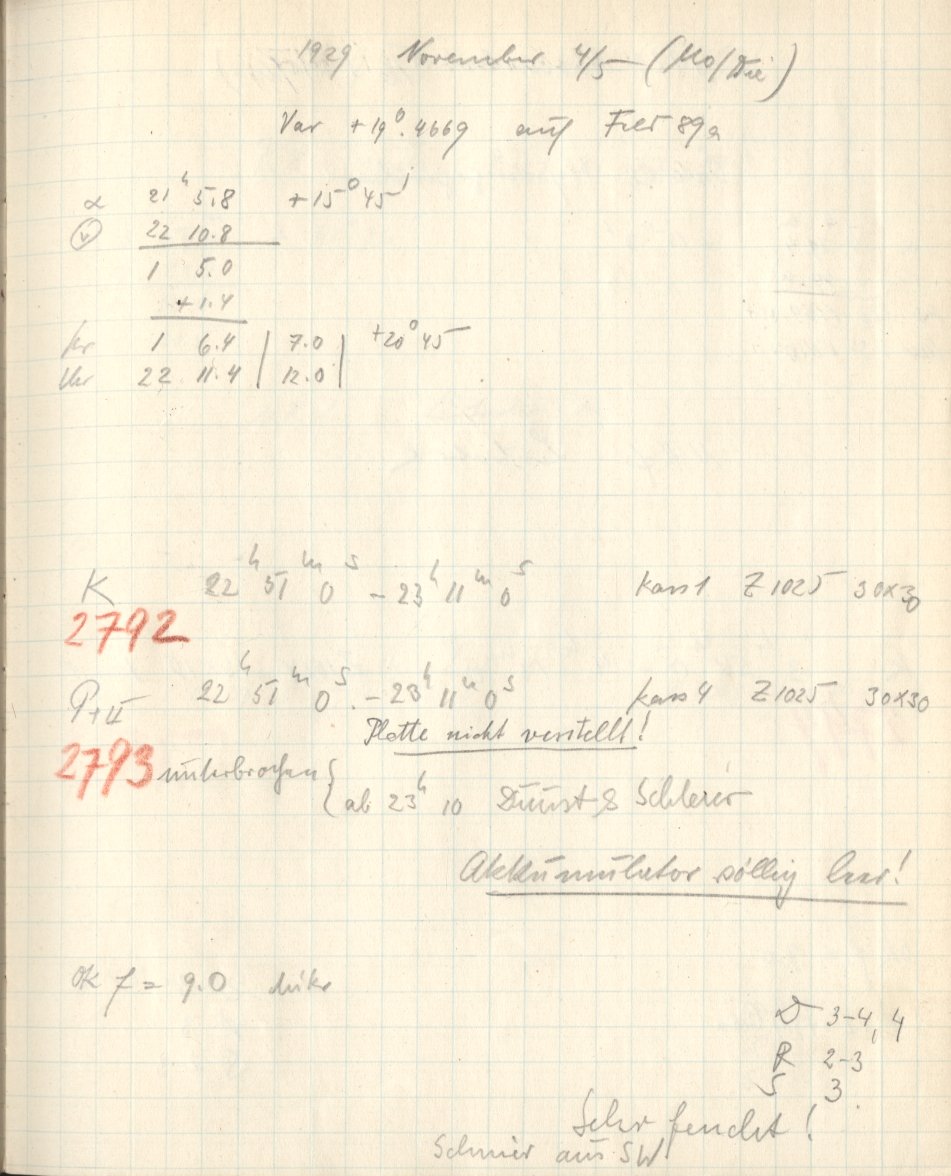 1929 November 4/5 (Mo/Die)
Var +19°.4669 auf Feld 89a
α 21ʰ 5.8 +15° 45'
22 10.8
1 5.0
+1.4
kr 1 6.4 | 7.0 | +20° 45
Uhr 22 11.4 | 12.0 |
K 22ʰ 51ᵐ 0ˢ - 23ʰ 11ᵐ 0ˢ Kass 1 Z 1025 30x30
2792
P+II 22ʰ 51ᵐ 0ˢ - 23ʰ 11ᵐ 0ˢ Kass 4 Z 1025 30x30
Platte nicht verstellt!
2793 unterbrochen { ab 23ʰ 10 Dunst & Schleier
Akkumulator völlig leer!
OK f = 9.0
D 3-4, 4
R 2-3
S 3
Sehr feucht!
aus SW